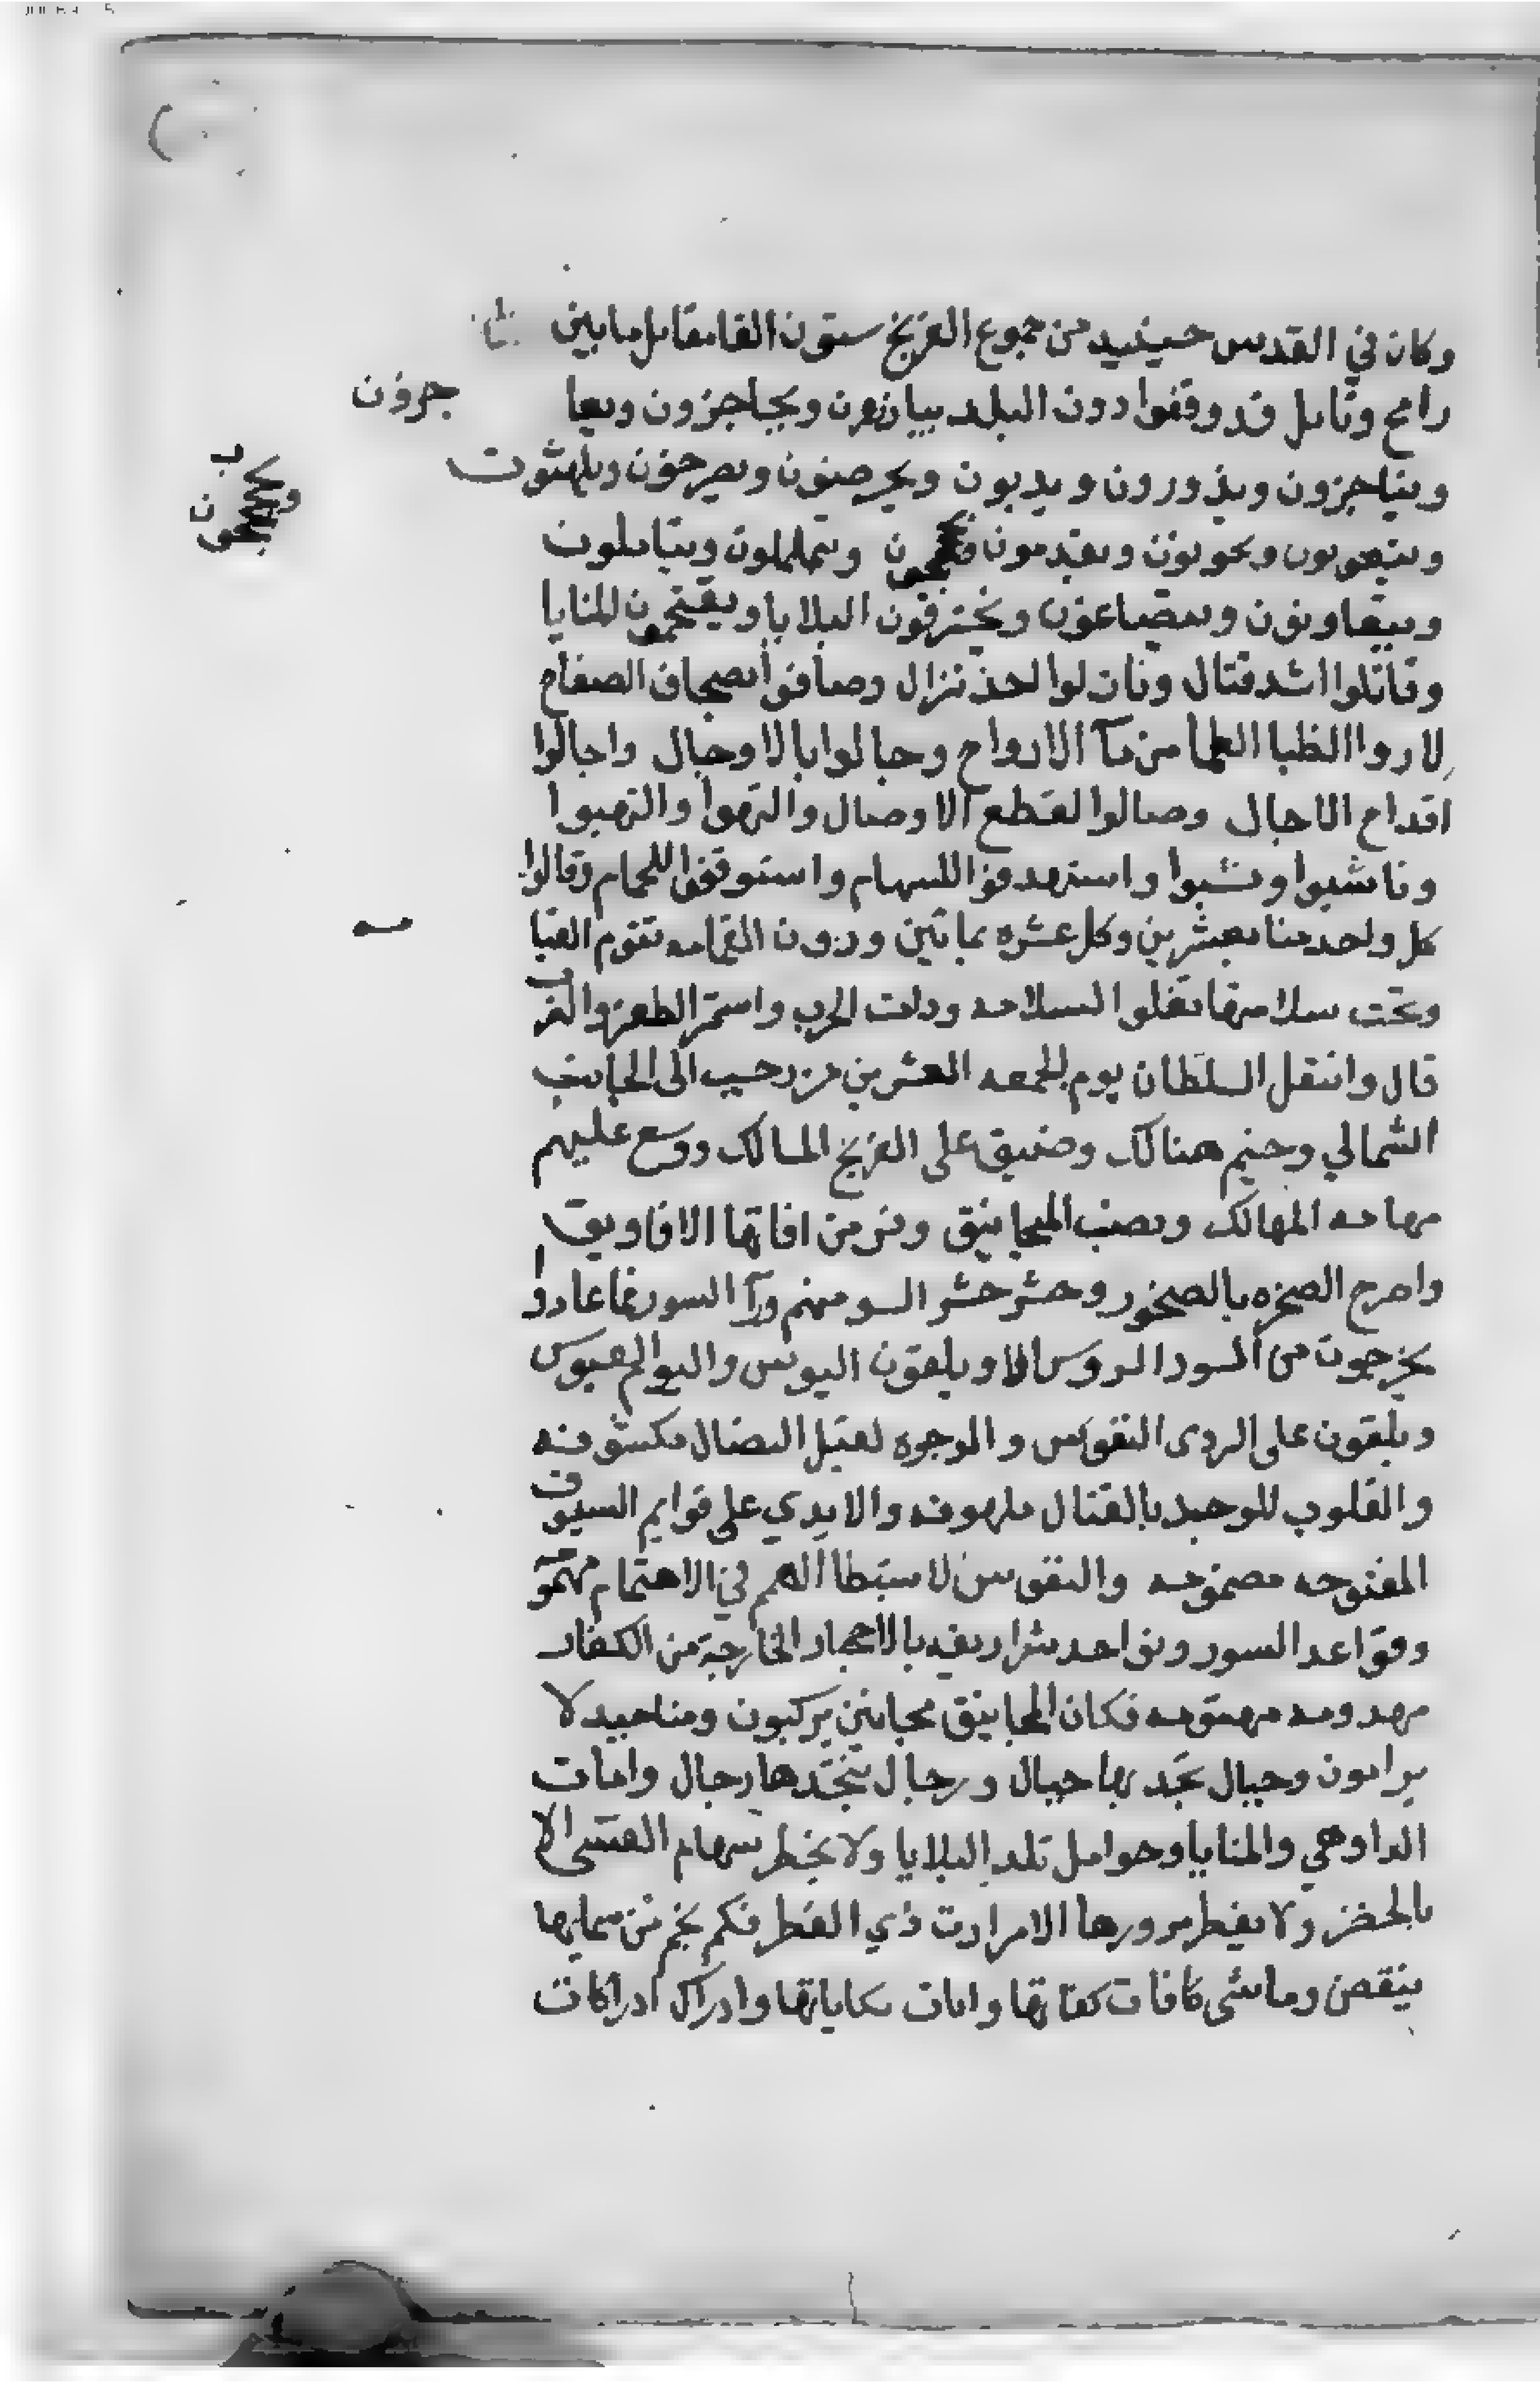 وكان في القدس حينيد من جموع الفرنج ستون الفا مقاتل ما بين
رامح ونابل قد وقفوا دون البلد يبارزون ويحاجزون ويعا
جزون
ويناجزون ويذورون ويدبون ويحرضون ويصرخون ويلهثون
ويتقدمون ويتململون ويتمايلون
ويتعاونون ويتضاعون ويخترقون البلايا ويقتحمون المنايا
وقاتلوا اشد قتال ونازلوا احد نزال وصافوا بصحاف الصفاح
لارواا الظبا الظما من مآ الارواح وجالوا بالاوجال واجالوا
اقداح الاجال وصالوا لقطع الاوصال والتهوا والتهبوا
وناشبوا ونشبوا واستهدفوا للسهام واستوقفوا للحمام وقالوا
كل واحد منا بعشرين وكل عشره بماتين ودون القمامه تقوم القيا
مه
وتحت سلامتها تغلوا السلامه ودامت الحرب واستمر الطعن والضرب
قال وانتقل السلطان يوم الجمعه العشرين من رجب الى الجانب
الشمالي وخيم هنالك وضيق على الفرنج المسالك ووسع عليهم
مهامه المهالك ونصب المجانيق ومن افاتها الافاويق
واصرخ الصخره بالصخور وحشر حشر السو منهم ورآ السور فما عادوا
يخرجون من السور الروس الا ويلقون البوس واليوم العبوس
ويلقون على الردى النفوس والوجوه لقبل النصال مكشوفه
والقلوب للوجد بالقتال ملهوفه والايدي على قوايم السيوف
المفتوحه مضمومه والنفوس لاستبطا الهمم في الاهتمام مهمومه
وقواعد السور ونواجد شراريفه بالاحجار الخارجة من الكفات
مهدومه مهتومه فكان المجانيق مجانين يركبون ومناجيد لا
يرامون وجبال تجد بها حبال ورجال تنجدها رجال وامات
الداوهي والمنايا وحوامل تلد البلايا ولا يخطر سهام القسي الا
بالخطر ولا يفطر مرورها الا مرارت ذي الفطر فكم نجم من سمايها
ينقض